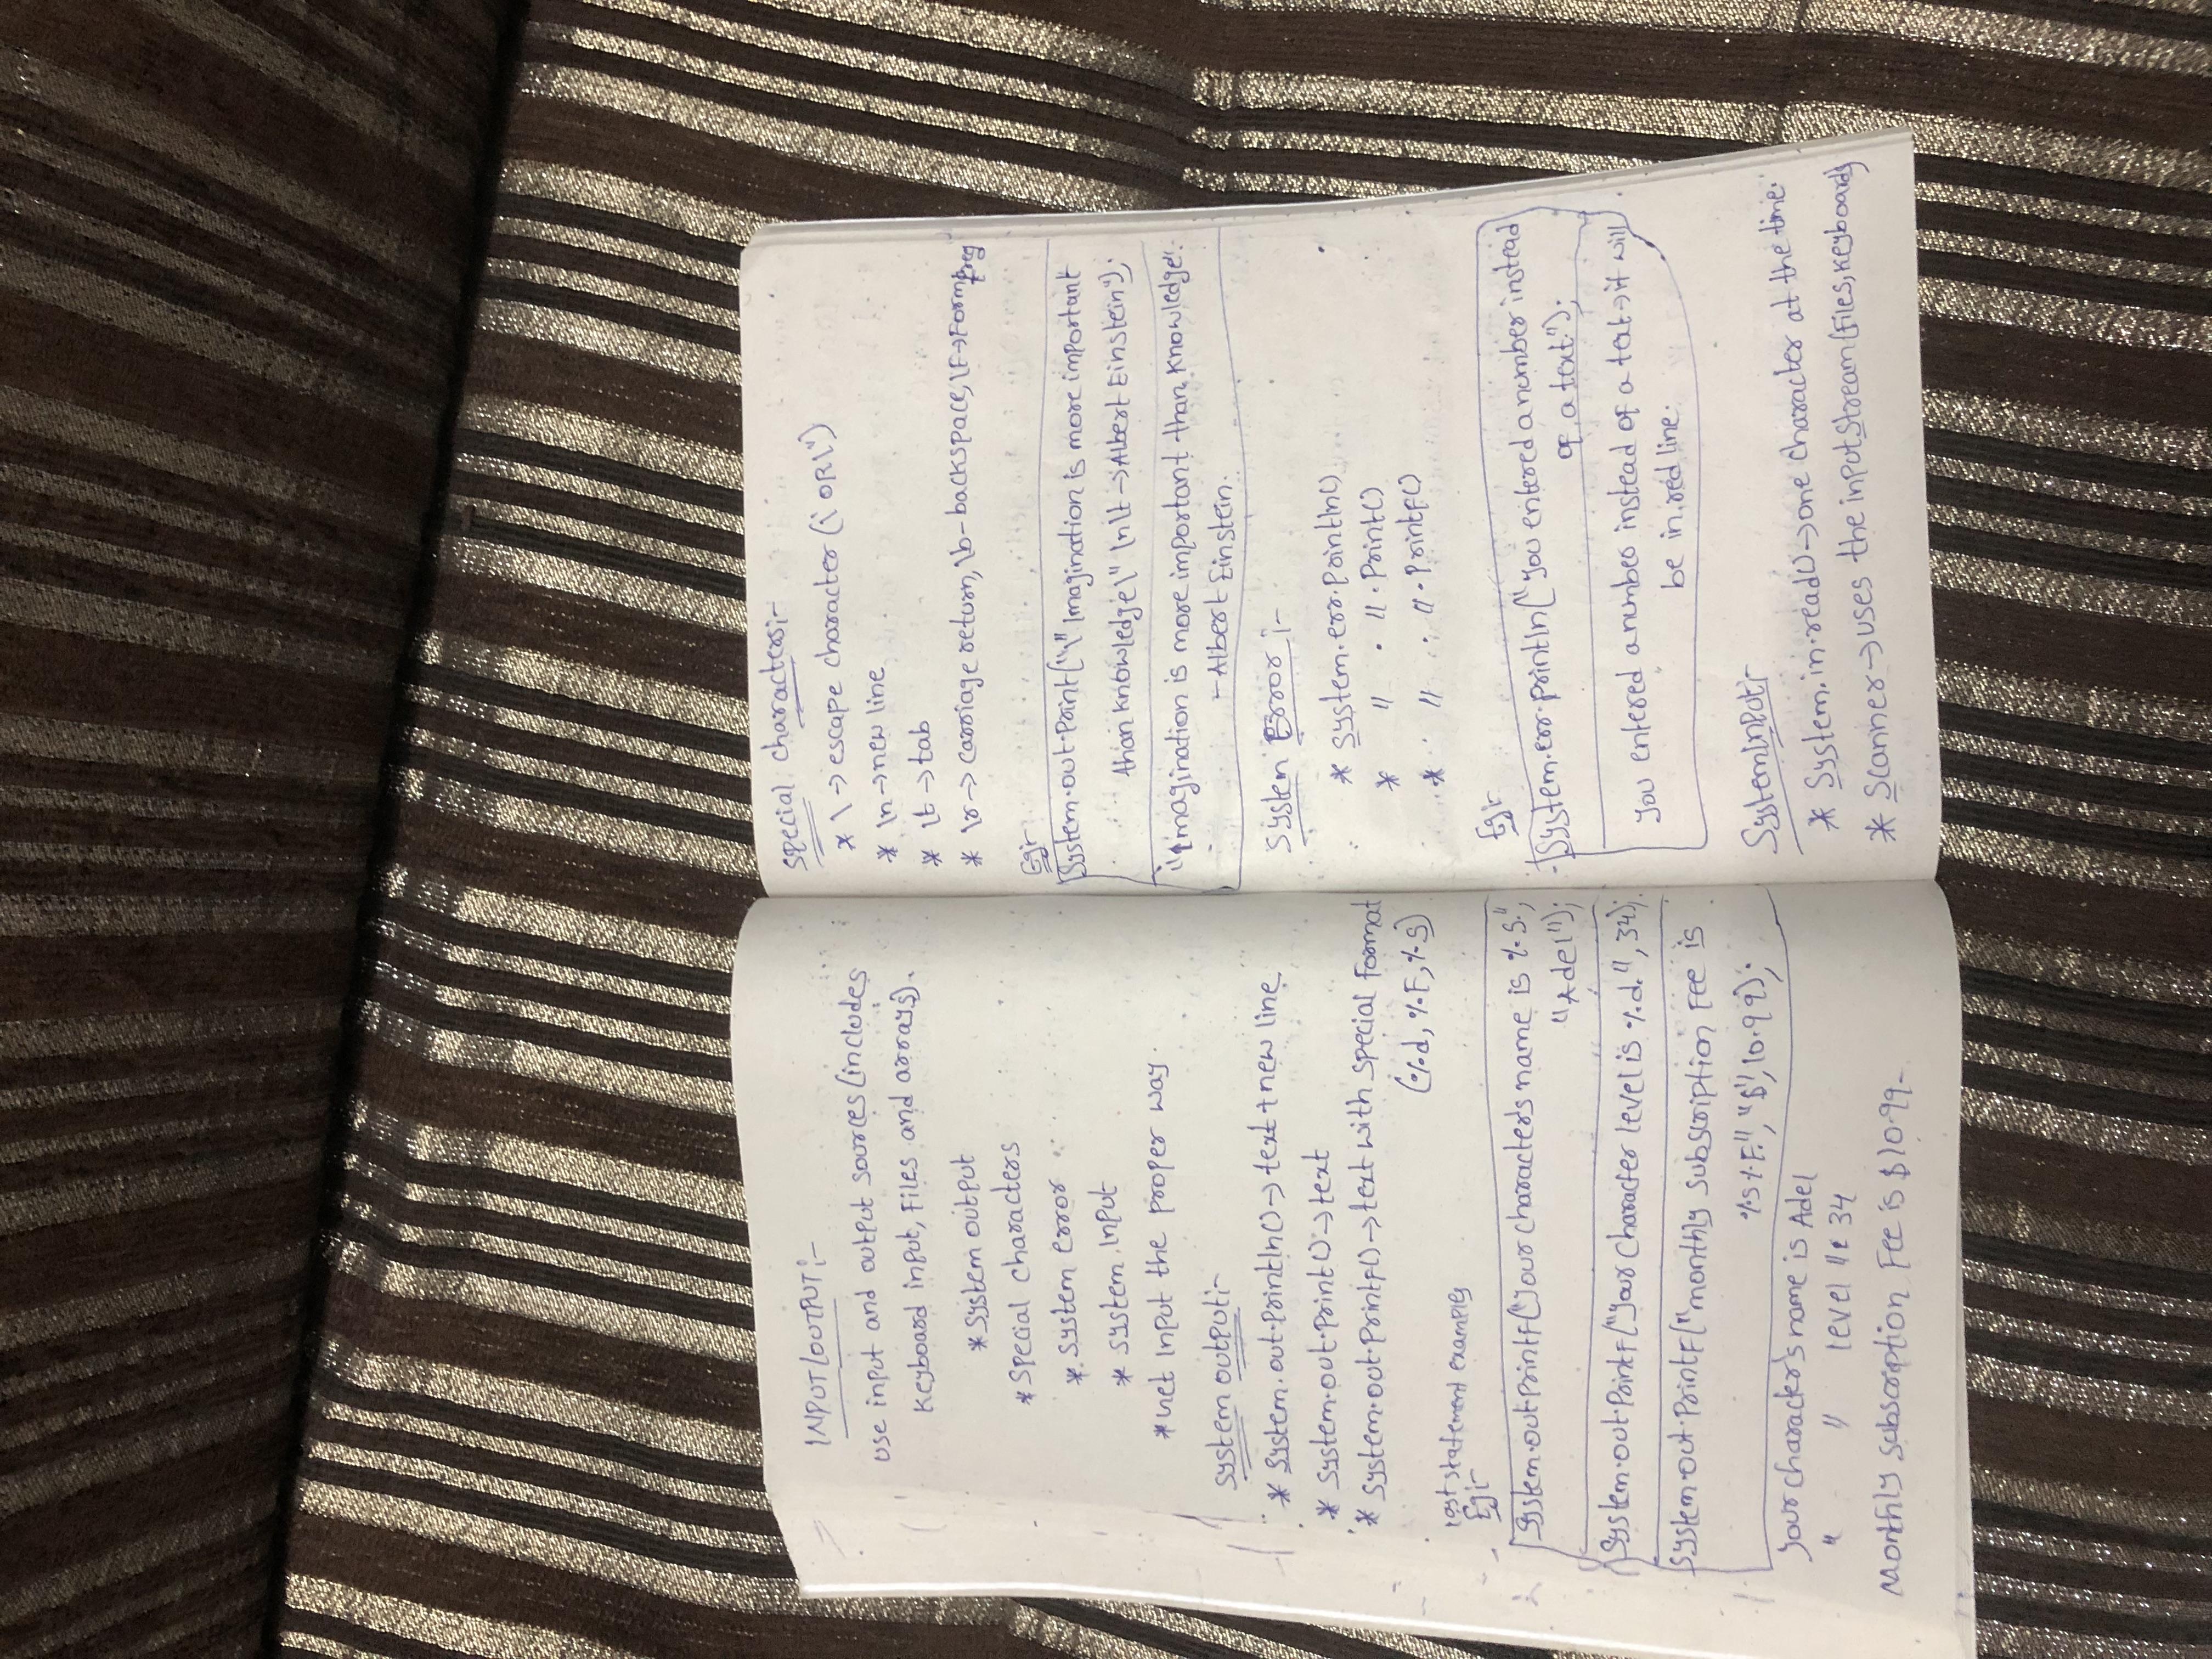 INPUT/OUTPUT:-
Use input and output sources (includes
Keyboard input, Files and arrays).
* System output
* Special characters
* System error
* System Input
* Get Input the proper way.
System output:-
* System.out.println() → text + new line
* System.out.print() → text
* System.out.printf() → text with special format
(%d, %F, %s)
Last statement examples
Eg:-
System.out.printf("Your character's name is %s.",
"Adel");
System.out.printf("Your character level is %d.", 34);
System.out.printf("monthly subscription Fee is
%s%F.", "$", 10.99);
Your character's name is Adel
" " level is 34
Monthly subscription Fee is $10.99.
Special characters:-
* \ → escape character (\' OR \")
* \n → new line
* \t → tab
* \r → carriage return, \b - backspace, \F → Form
Eg:-
System.out.print("\" Imagination is more important
than knowledge\" \n\t → Albert Einstein");
"Imagination is more important than knowledge".
- Albert Einstein.
System Error :-
* System.err.println()
* " . ".Print()
* " . ".PrintF()
Eg:-
System.err.println("You entered a number instead
of a text.");
You entered a number instead of a text → it will
be in red line.
System Input:-
* System.in.read() → one character at the time.
* Scanner → uses the inputStream (Files, Keyboard)